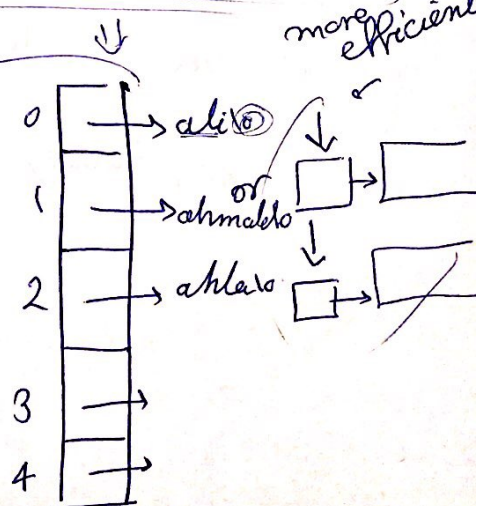 more
efficient
0 ali\0
or
1 ahmad\0
2 ahla\0
3
4